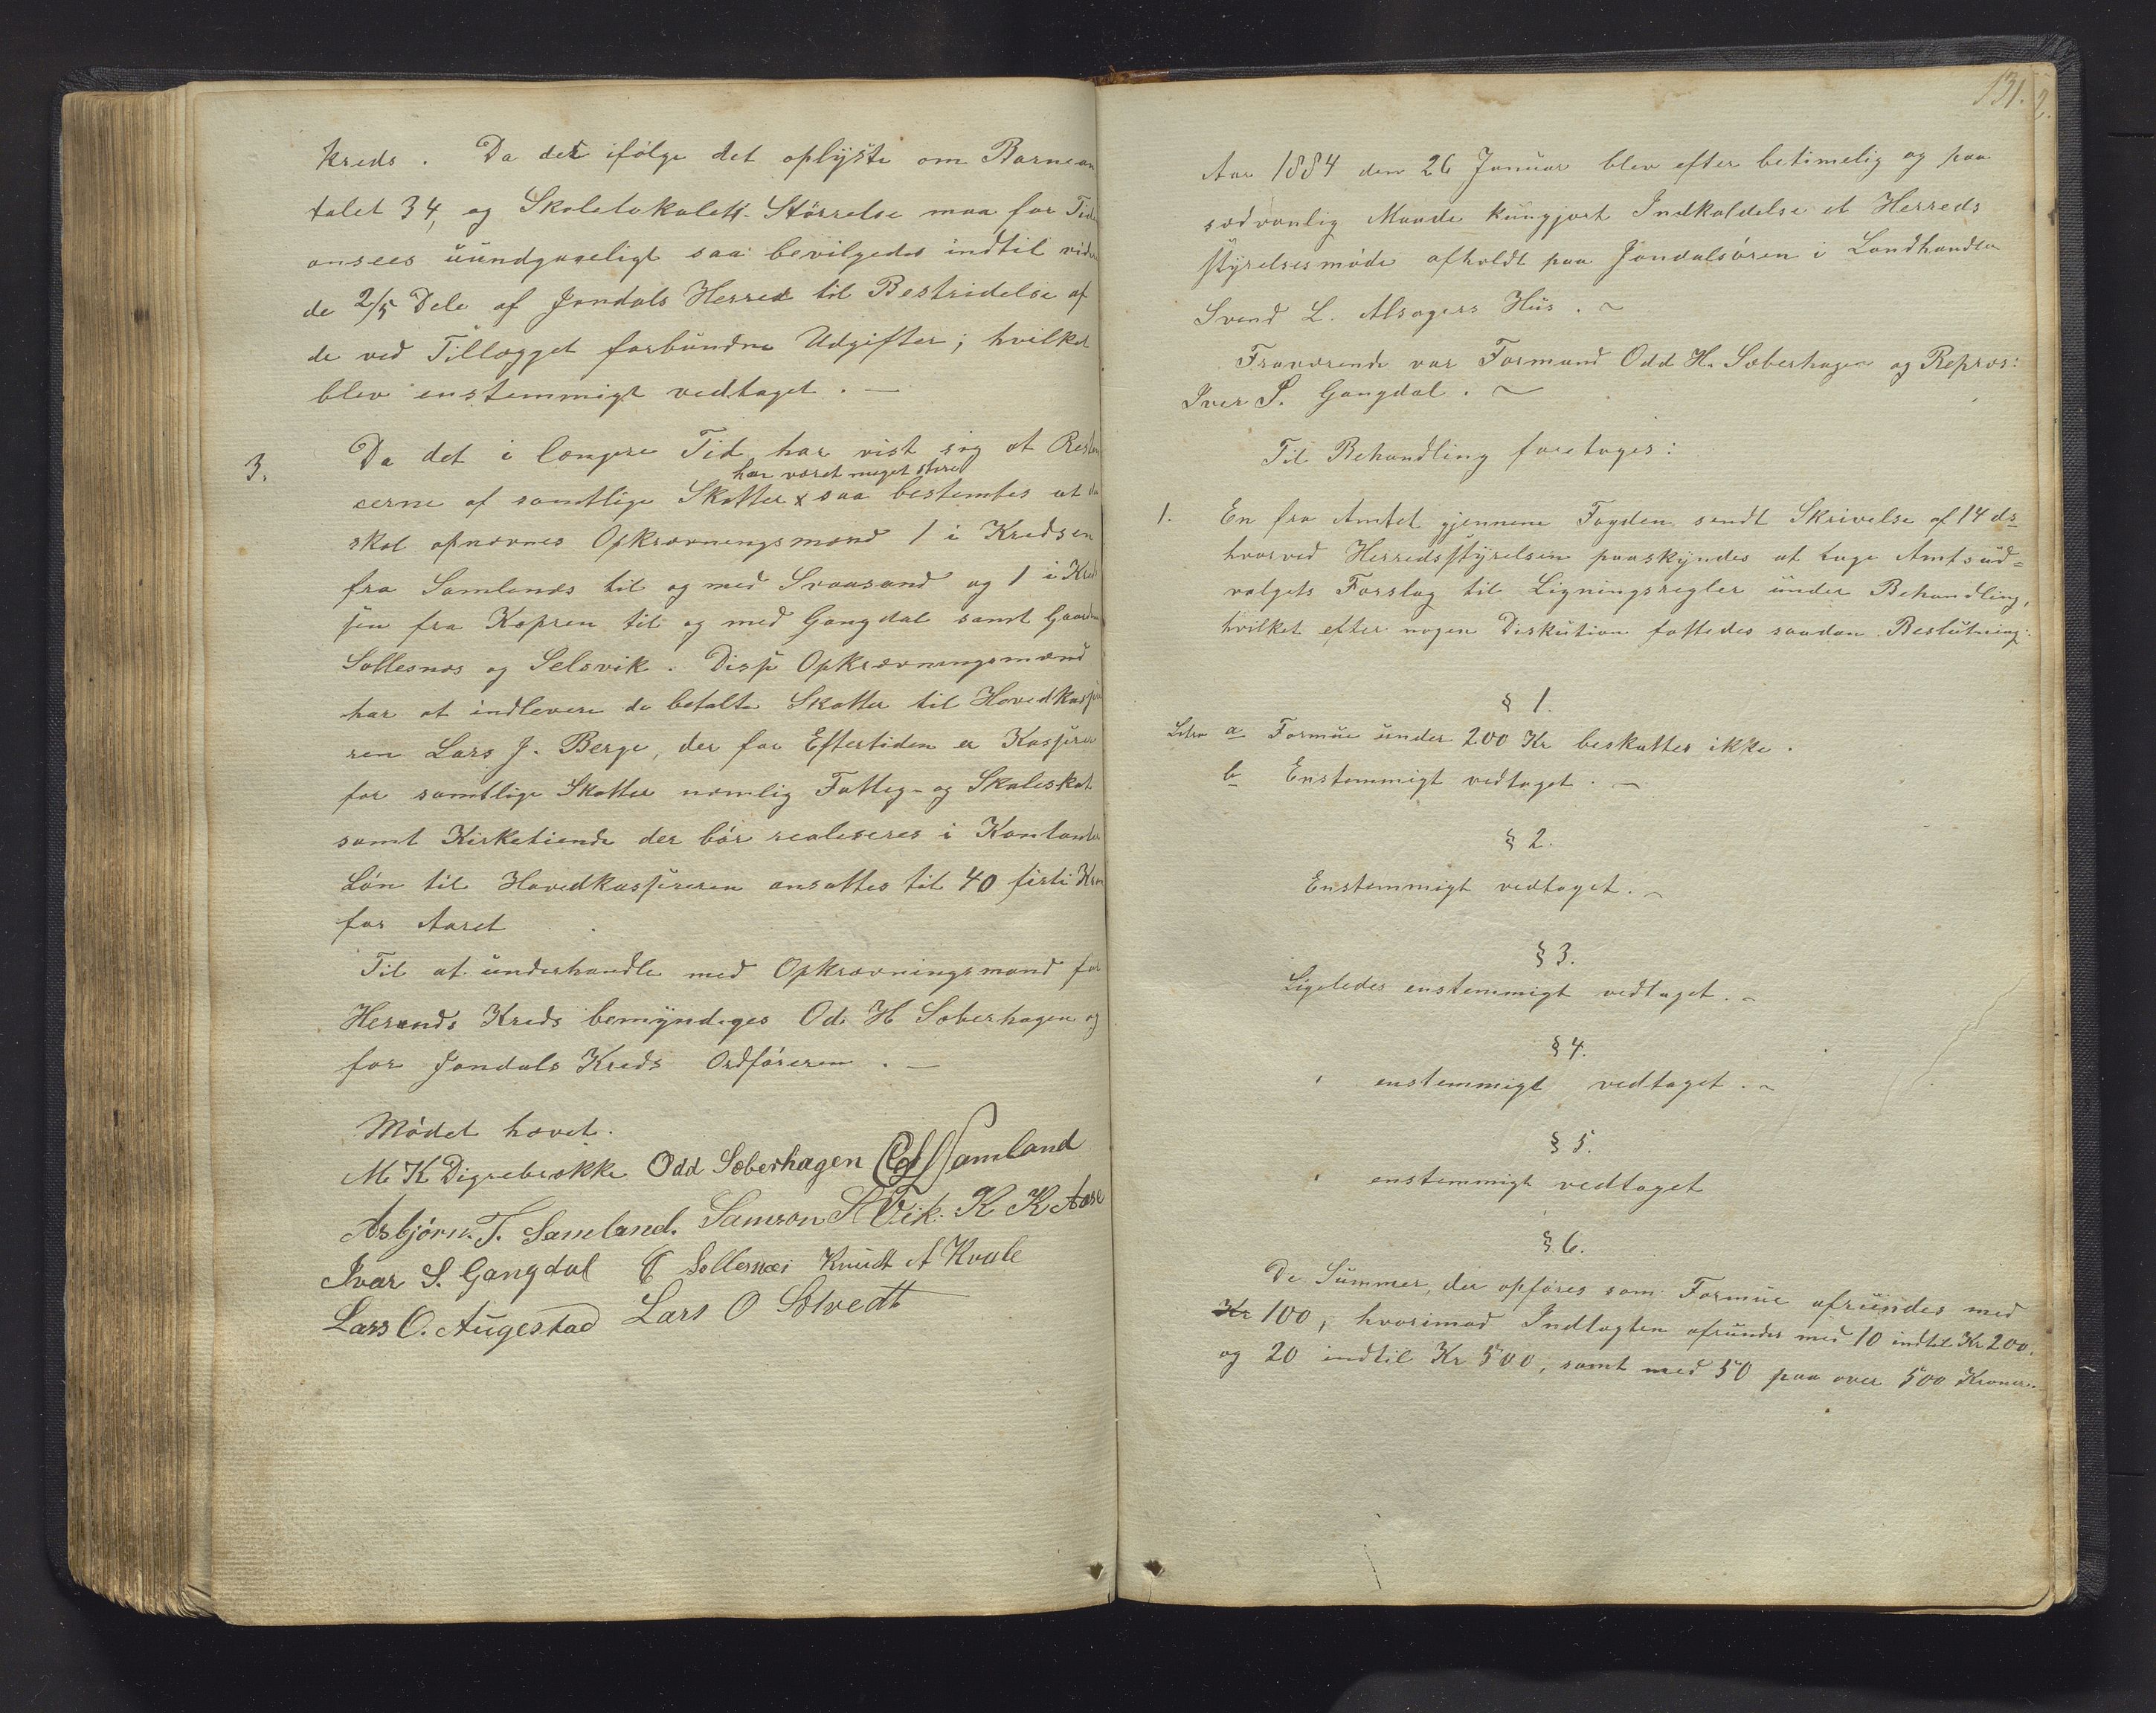 Kreds. Da det ifølge det oplyste om Barnean
tallet 34, og Skolelokalets Størrelse maa for Tiden
ansees uundgaaeligt saa bevilgedes indtil vide
de 2/5 Dele af Jondals Herred til Bestridelse af
de ved Tillægget forbundne Udgifter; hvilket
blev enstemmigt vedtaget. —
3. Da det i længere Tid har vist sig at Restan
har været meget store
cerne af samtlige Skatter x saa bestemtes at da
skal opnævnes Opkrævningsmænd 1 i Kredsen
fra Samlenes til og med Svaasand og 1 i Kred
sen fra Kopren til og med Gangdal samt Gaarden
Sollesnæs og Selsvik. Disse Opkrævningsmænd
har at indlevere de betalte Skatter til Hovedkasse
ren Lars J. Berge, der for Eftertiden er Kasserer
for samtlige Skatter nemlig Fattig- og Skoleskat
samt Kirketiende der bør realiseres i Kontanter
Løn til Hovedkassereren ansattes til 40 firti Kro
for Aaret
Til at underhandle med Opkrævningsmand for
Herands Kreds bemyndiges Od. H Soberhagen og
for Jondals Kreds Ordføreren. —
Mødet hævet.
M K Digrebrekke Odd Soberhagen Samland
Asbjørn. T. Samland. Samson S Vik. K K Aase
Ivar S. Gangdal Sollesnæs Knudt A Kvale
Lars O. Augestad Lars O Solvedt
131.
2.
Aar 1884 den 26 Januar blev efter betimelig og paa
sædvanlig Maade kungjort Indkaldelse et Herreds
styrelsesmøde afholdt paa Jondalsøren i Landhandler
Svend L. Alsagers Hus. ~
Fraværende var Formand Odd H. Soberhagen og Repræs:
Iver S. Gangdal. ~
Til Behandling foretoges:
1. En fra Amtet gjennem Fogden sendt Skrivelse af 14 ds
hvorved Herredsstyrelsen paaskyndes at tage Amtsud=
valgets Forslag til Ligningsregler under Behandling,
hvilket efter nogen Diskution fattedes saadan Beslutning:
§ 1.
Litra a Formue under 200 Kr beskattes ikke.
b Enstemmigt vedtaget. —
§ 2.
Enstemmigt vedtaget. ~
§ 3.
Ligeledes enstemmigt vedtaget. ~
§ 4.
enstemmigt vedtaget. ~
§ 5.
enstemmigt vedtaget
§ 6.
De Summer, der opføres som Formue afrundes med
Kr 100, hvorimod Indtægten afrundes med 10 indtil Kr 200.
og 20 indtil Kr 500, samt med 50 paa over 500 Kroner.